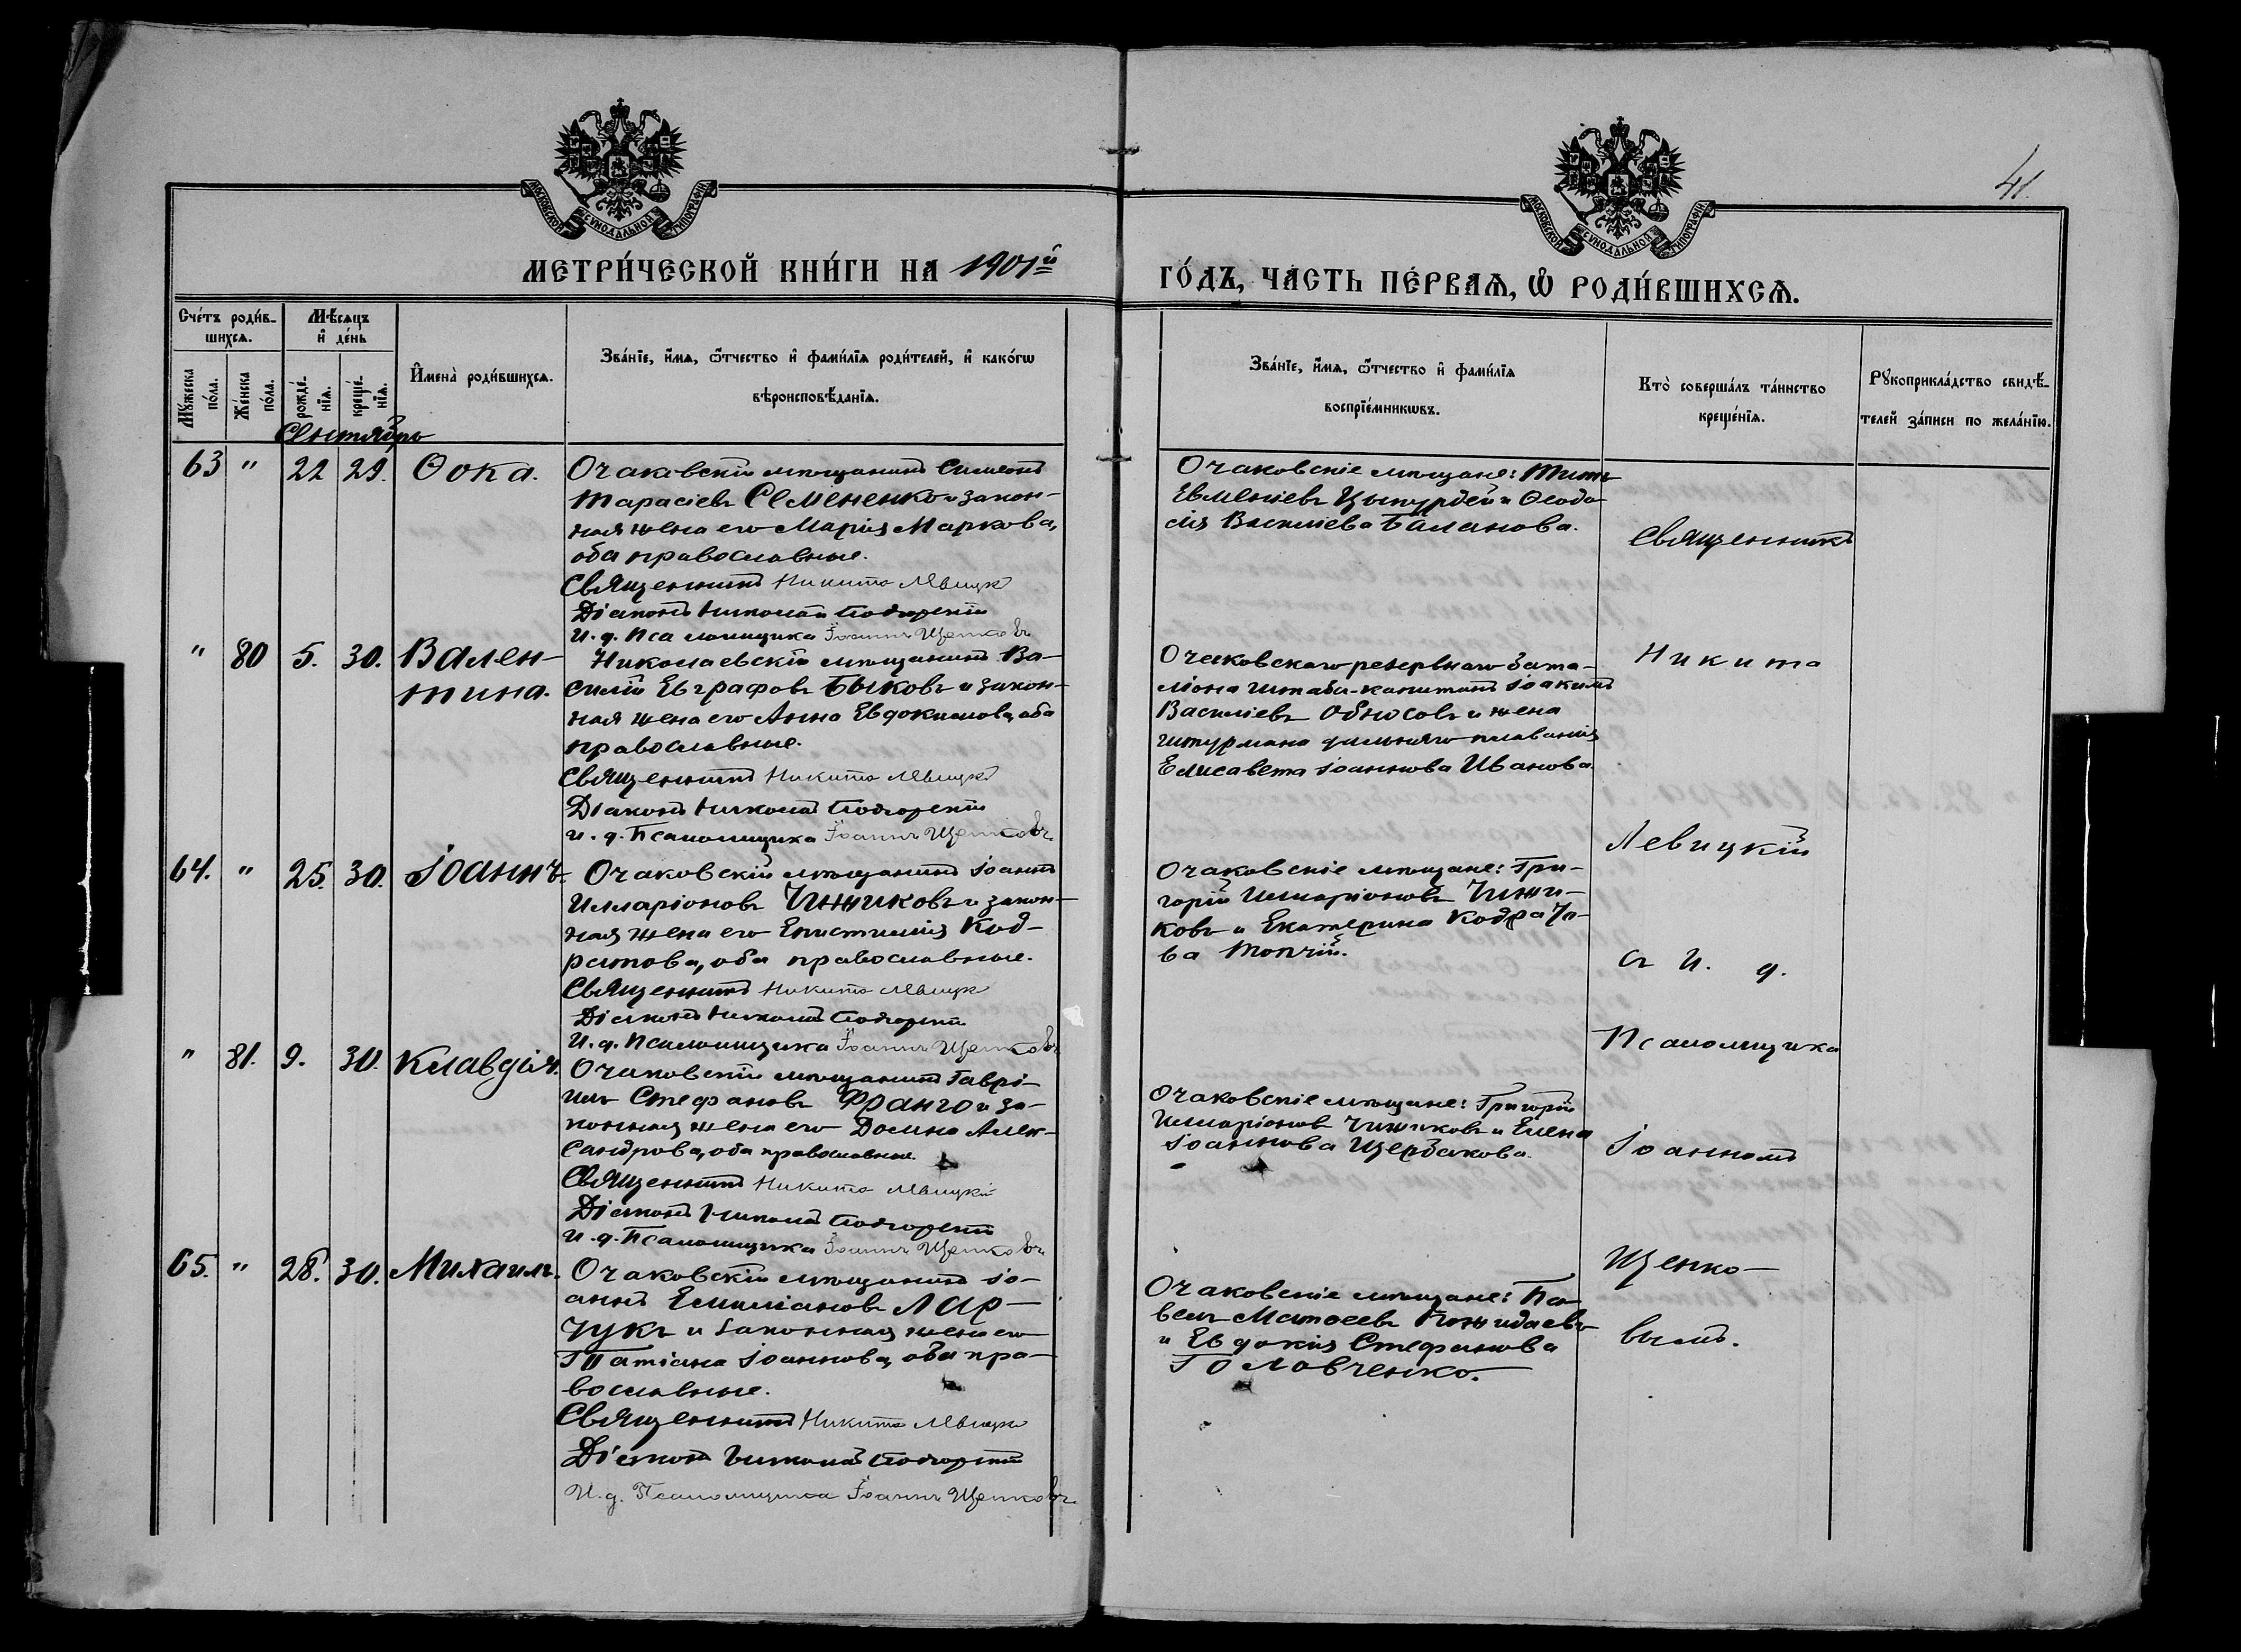 41.
МОСКОВСКОЙ СѴНОДАЛЬНОЙ ТИПОГРАФІИ
МОСКОВСКОЙ СѴНОДАЛЬНОЙ ТИПОГРАФІИ
МЕТРИ́ЧЕСКОЙ КНИ́ГИ НА 1901й
ГО́ДЪ, ЧА́СТЬ ПЕ́РВАѦ, Ѡ РОДИ́ВШИХСѦ.
Сче́тъ роди́в-
шихсѧ.
Мѣ́сѧцъ
и҆ де́нь
Мꙋ́жеска по́ла.
Же́нска по́ла.
рожде́-нїѧ.
креще́-нїѧ.
И҆мена̀ роди́вшихсѧ.
Зва́нїе, и҆́мѧ, ѻ҆́тчество и҆ фами́лїѧ роди́телей, и҆ како́гѡ
вѣроисповѣ́данїѧ.
Зва́нїе, и҆́мѧ, ѻ҆́тчество и҆ фами́лїѧ
воспрїе́мникѡвъ.
Кто̀ соверша́лъ та́инство
креще́нїѧ.
Рꙋкоприкла́дство свидѣ́-
телей за́писи по жела́нїю.
Сентябрь
63 " 22 29. Ѳока.
Очаковскій мѣщанинъ Симеонъ
Тарасіевъ Семененко и закон-
ная жена его Марія Маркова,
оба православные.
Священникъ Никита Левицкій
Діаконъ Николай Подгорскій
И. д. Псаломщика Іоаннъ Щенковъ
Очаковскіе мѣщане: Титъ
Евменіевъ Цытурдей и Ѳеодо-
сія Василіева Баланова.
" 80 5. 30. Вален-
тина.
Николаевскій мѣщанинъ Ва-
силій Евграфовъ Быковъ и закон-
ная жена его Анна Евдокимова, оба
православные.
Священникъ Никита Левицкій
Діаконъ Николай Подгорскій
и. д. Псаломщика Іоаннъ Щенковъ
Очаковскаго резервнаго бата-
ліона штабс-капитанъ Іоакимъ
Василіевъ Обносовъ и жена
штурмана дальняго плаванія
Елисавета Іоаннова Иванова.
64. " 25. 30. Іоаннъ.
Очаковскій мѣщанинъ Іоаннъ
Илларіоновъ Чижиковъ и закон-
ная жена его Епистимія Код-
ратова, оба православные.
Священникъ Никита Левицкій
Діаконъ Николай Подгорскій
И. д. Псаломщика Іоаннъ Щенковъ
Очаковскіе мѣщане: Гри-
горій Илларіоновъ Чижи-
ковъ и Екатерина Кодрато-
ва Топчій.
" 81. 9. 30. Клавдія.
Очаковскій мѣщанинъ Гаврі-
илъ Стефановъ Франго и за-
конная жена его Домна Алек-
сандрова, оба православные.
Священникъ Никита Левицкій
Діаконъ Николай Подгорскій
И. д. Псаломщика Іоаннъ Щенковъ
Очаковскіе мѣщане: Григорій
Илларіоновъ Чижиковъ и Елена
Іоаннова Щербакова.
65. " 28. 30. Михаилъ.
Очаковскій мѣщанинъ Іо-
аннъ Емиліановъ Лар-
чукъ и законная жена его
Татіана Іоаннова, оба пра-
вославные.
Священникъ Никита Левицкій
Діаконъ Николай Подгорскій
И. д. Псаломщика Іоаннъ Щенковъ
Очаковскіе мѣщане: Па-
велъ Матѳеевъ
и Евдокія Стефанова
Головченко.
Священникъ
Никита
Левицкій
съ И. д.
Псаломщика
Іоанномъ
Щенко-
вымъ.